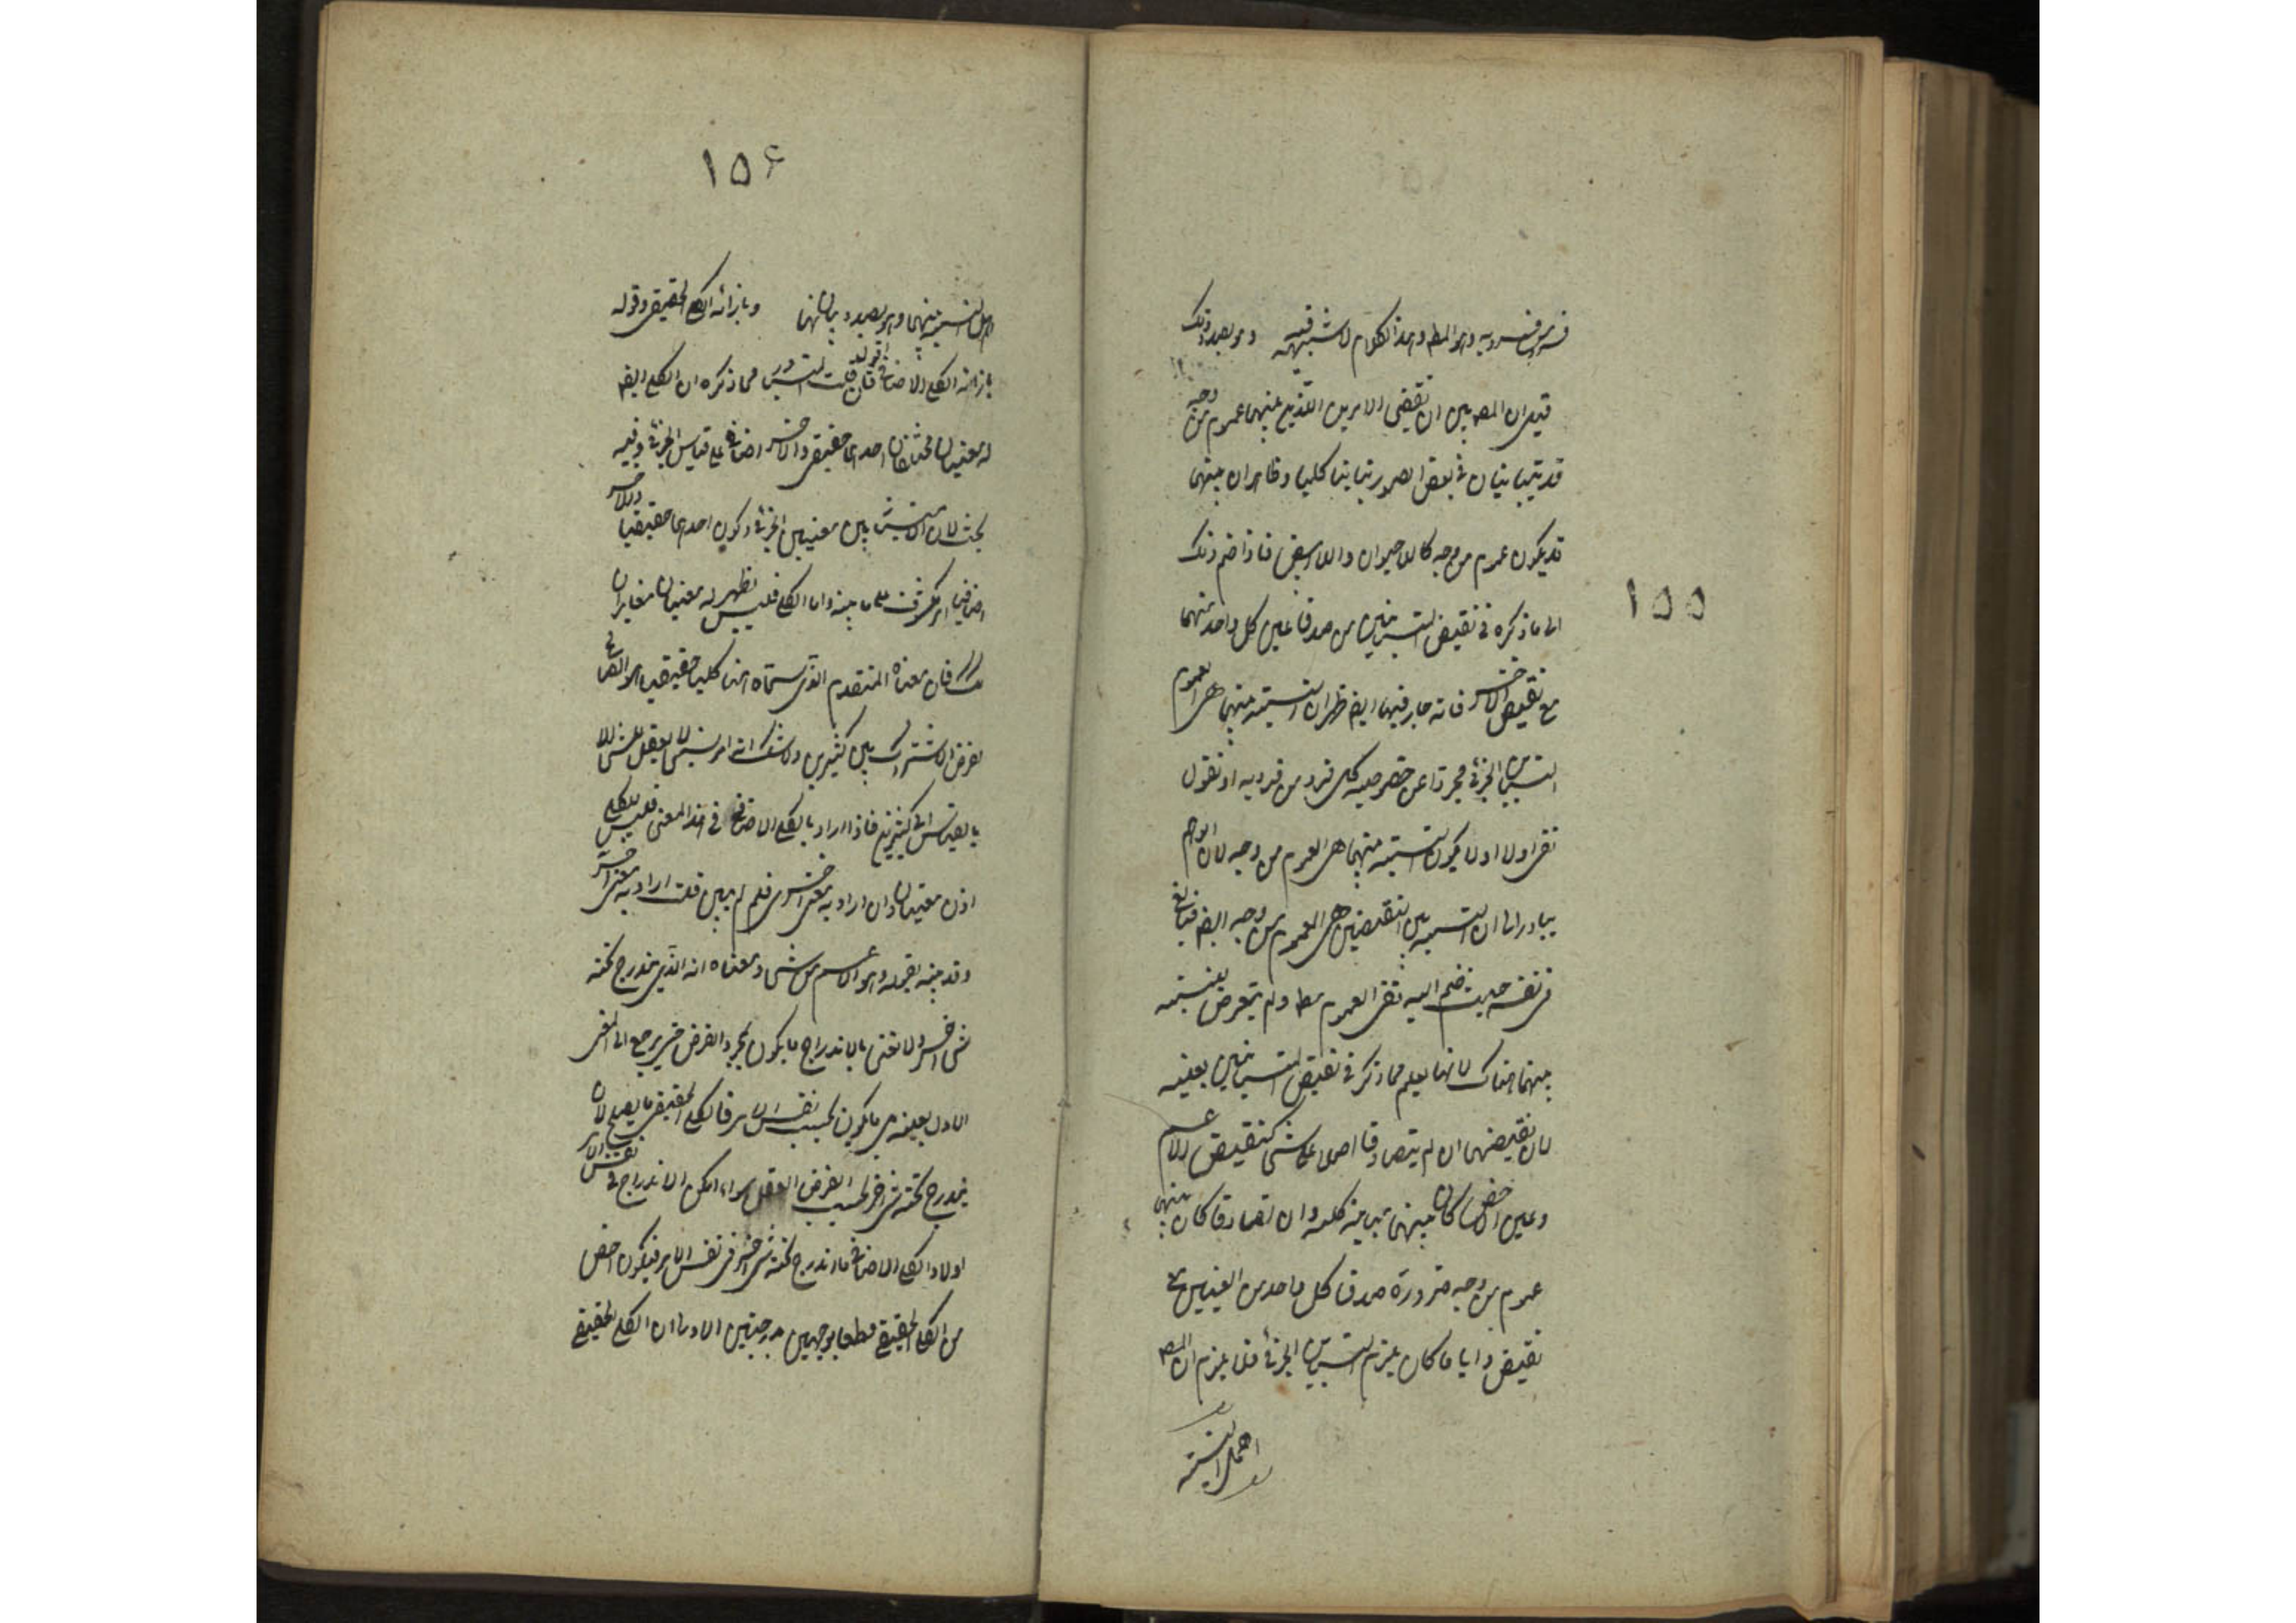 ١٥٥
في من فردية وهو المط وهذا الكلام لا شبهة فيه وهو بصدد ذلك
قيل ان المص بين ان نقيضي الامرين اللذين بينهما عموم من وجه
قد يتباينان في بعض الصور تباينا كليا وظاهر ان بينهما
قد يكون عموم من وجه كاللاحيوان واللاابيض فاذا ضم ذلك
الى ما ذكره في نقيض المتباينين من صدق عين كل واحد منهما
مع نقيض الاخر فانه جار فيهما ايض ظهر ان النسبة بينهما هي العموم
التباين الجزئي مجردا عن خصوصية كل فرد من فرديه او نقول
نفى اولا ان لا يكون النسبة بينهما هي العموم من وجه لان الوهم
يبادر الى ان النسبة بين النقيضين هي العموم من وجه ايض فبالغ
في نفيه حيث ضم اليه نفي العموم مط ولم يتعرض بنسبته
بينهما هناك لانها يعلم مما ذكر في نقيض المتباينين بعينه
لان نقيضهما ان لم يتصادقا اصلا على شئ كنقيض الاعم
وعين الاخص كان بينهما مباينة كلية وان تصادقا كان بينهما
عموم من وجه ضرورة صدق كل واحد من العينين مع
نقيض وايا ما كان يلزم التباين الجزئي فلا يلزم ان المص
اهمل النسبة
١٥۶
اهمل النسبة بينهما وهو بصدد بيانها وبازائه الكلي الحقيقي وقوله
بازائه الكلي الاضافي اقول فان قلت المتبادر مما ذكره ان الكلي ايض
له معنيان مختلفان احدهما حقيقي والاخر اضافي على قياس الجزئي وفيه
بحث لان الامتياز بين معنيي الجزئي وكون احدهما حقيقيا والاخر
اضافيا امر مكشوف على ما بينه واما الكلي فليس يظهر له معنيان متغايران
كذلك فان معناه المتقدم الذي سماه هنا كليا حقيقيا هو الصالح
لفرض الاشتراك بين كثيرين ولا شك انه امر نسبي لا يعقل للشئ الا
بالقياس الى كثيرين فاذا اراد بالكلي الاضافي هذا المعنى فليس للكلي
اذن معنيان وان اراد به معنى اخر فلم لم يبين قلت اراد به معنى اخر
وقد بينه بقوله وهو الاعم من شئ ومعناه انه الذي يندرج تحته
شئ اخر ولا نعني بالاندراج ما يكون بمجرد الفرض حتى يرجع الى المعنى
الاول بعينه بل ما يكون بحسب نفس الامر فالكلي الحقيقي ما يصلح لان
يندرج تحته شئ اخر بحسب الفرض العقلي سواء امكن الاندراج في نفس الامر
اولا والكلي الاضافي ما اندرج تحته شئ اخر في نفس الامر فيكون اخص
من الكلي الحقيقي قطعا بوجهين بدرجتين الاولى ان الكلي الحقيقي